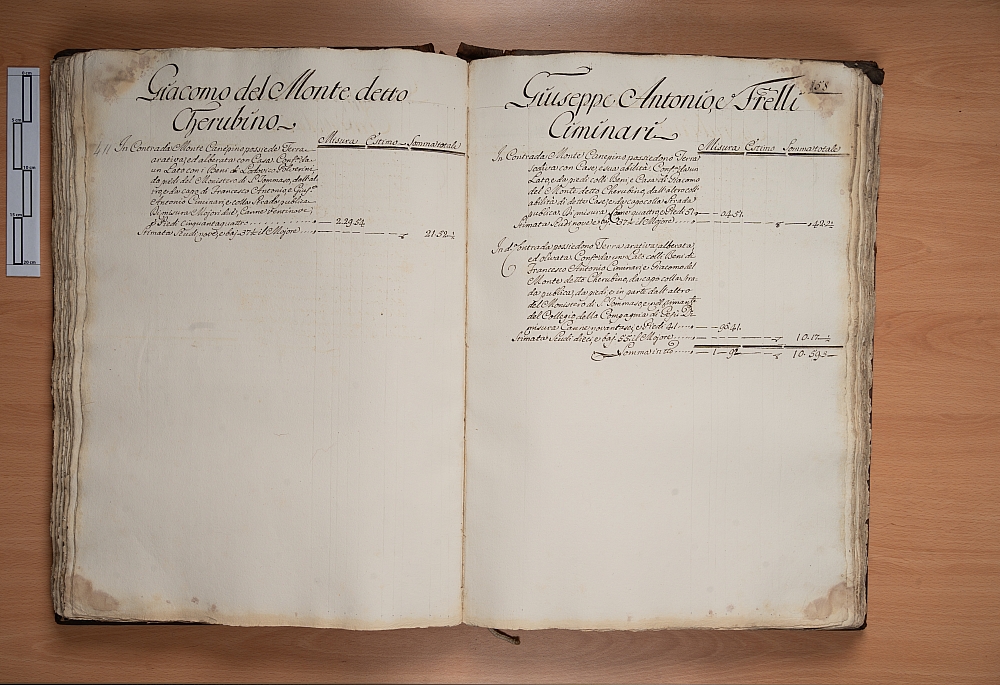 Giacomo del Monte detto
Cherubino
Misura Estimo Somma totale
In Contrada Monte Canepino possiede Terra
arativa, ed alberata con Casa Conf.ª da
un Lato con i Beni di Lodovico
da piedi del Monistero di S. Tommaso, dall'al
tro, e da capo di Francesco Antonio, e
Antonio Ciminari, e colla strada publica
Di misura Majori due, Canne ventinove,
e Piedi Cinquantaquattro 2.29.54
Stimata Scudi nove, e baj. 37½ il Majore 21.52
158
Giuseppe Antonio, e Frelli
Ciminari
Misura Estimo Somma totale
In Contrada Monte Canepino possiedono Terra
con Case, e sua abilità Conf.ª da un
Lato, e da piedi colli Beni, e Casa di Giacomo
del Monte detto Cherubino, dall'altro coll'
abilità di dette Case, e da capo colla Strada
publica Di misura Canne quattro, e Piedi 51 0.4.51
Stimata Scudi nove, e baj. 37½ il Majore 42½
In d.ª Contrada possiedono Terra arativa, alberata,
ed olivata Conf.ª da un Lato colli Beni di
Francesco Antonio Ciminari, e Giacomo del
Monte detto Cherubino, da capo colla Stra
da publica, da piedi, e in parte dall'altro
del Monistero di S. Tommaso, e
del Collegio della Compagnia di Gesù Di
misura Canne novantasei, e Piedi 41 96.41
Stimata Scudi dieci, e baj. 55 il Majore 10.17
Somma in tto 1 10.59